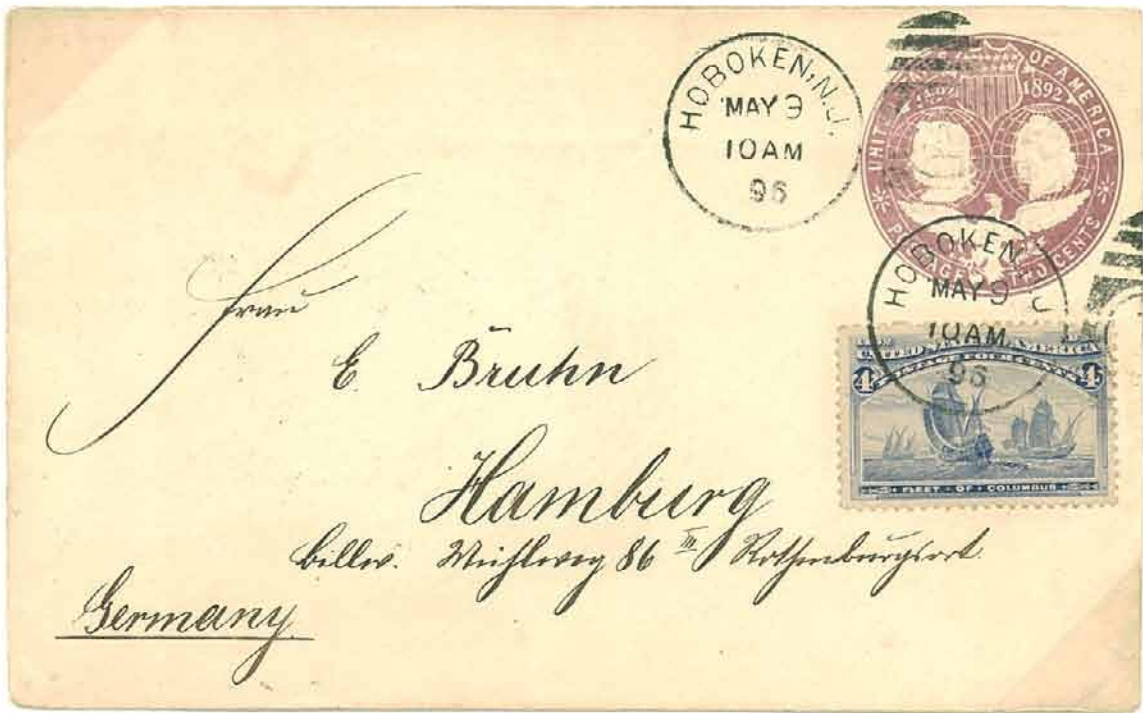 HOBOKEN, N.J.
MAY 9
10 AM
96
UNITED OF AMERICA
1892
POSTAGE TWO CENTS
HOBOKEN, N.J.
MAY 9
10 AM
96
UNITED AMERICA
POSTAGE FOUR CENTS
4 4
FLEET · OF · COLUMBUS
Frau
E. Bruhn
Hamburg
Billw. 86 III Rothenburgsort.
Germany.